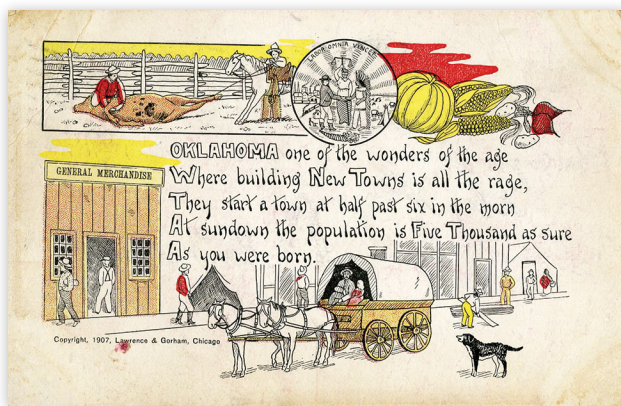 LABOR OMNIA VINCET
OKLAHOMA one of the wonders of the age
GENERAL MERCHANDISE
Where building New Towns is all the rage,
They start a town at half past six in the morn
At sundown the population is Five Thousand as sure
As you were born.
Copyright, 1907, Lawrence & Gorham, Chicago